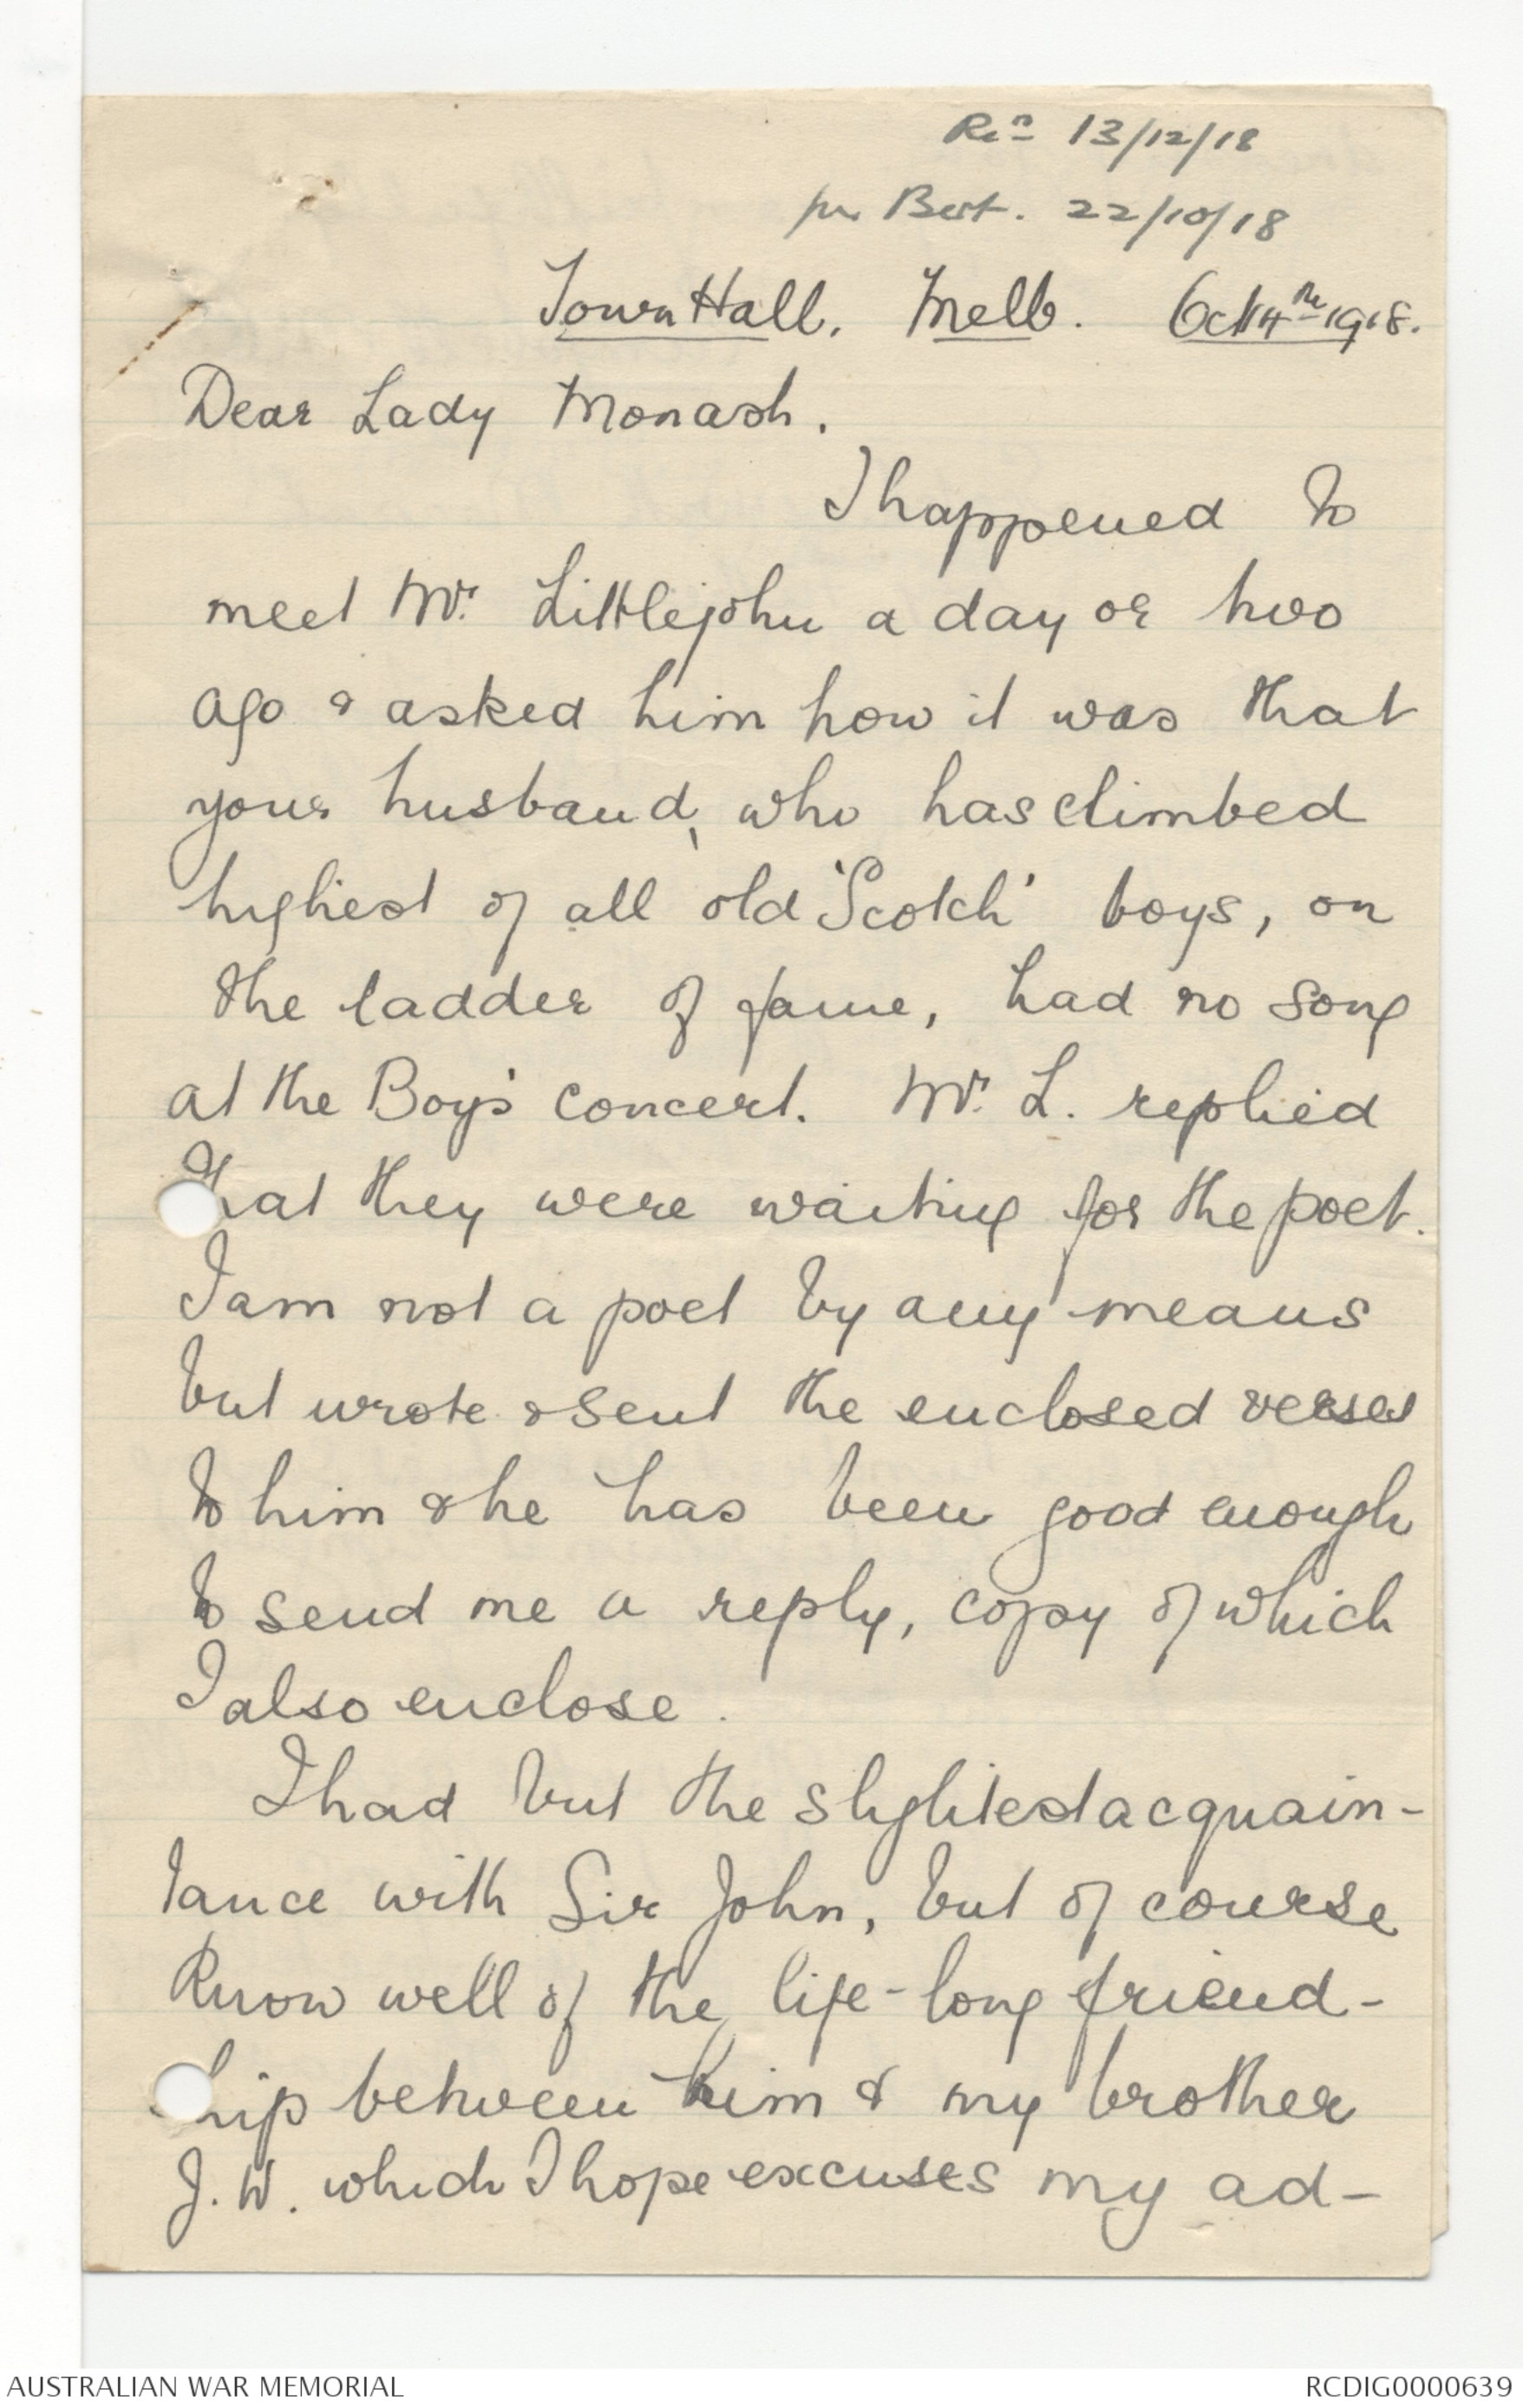 Recd 13/12/18
per Bert. 22/10/18
Town Hall. Melb. Oct 4th 1918.
Dear Lady Monash.
I happened to
meet Mr. Littlejohn a day or two
ago & asked him how it was that
your husband, who has climbed
highest of all old 'Scotch' boys, on
the ladder of fame, had no song
at the Boy's concert. Mr. L. replied
that they were waiting for the poet.
I am not a poet by any means
but wrote & sent the enclosed verses
to him & he has been good enough
to send me a reply, copy of which
I also enclose.
I had but the slightest acquain-
tance with Sir John, but of course
know well of the life-long friend-
ship between him & my brother
J. W. which I hope excuses my ad-
AUSTRALIAN WAR MEMORIAL
RCDIG0000639